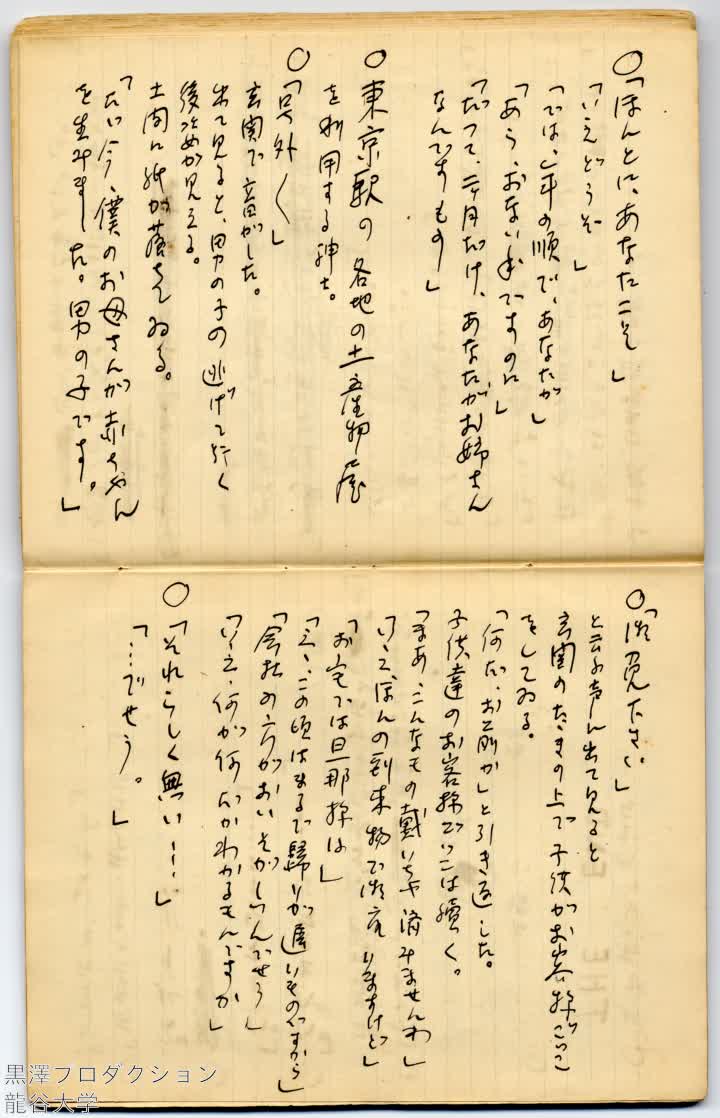 ○「ほんとに、あなたこそ」
「いえどうぞ」
「では、年の順で、あなたが」
「あら、おない年ですのに」
「だって、二ヶ月だけ、あなたがお姉さん
なんですもの」
○東京駅の各地の土産物屋
を利用する紳士。
○「号外〱」
玄関で音がした。
出て見ると、男の子の逃げて行く
後姿が見える。
土間に紙が落ちてゐる。
「たゞ今、僕のお母さんが赤ちゃん
を生みました。男の子です。」
○「御免下さい」
と云ふ声に出て見ると
玄関のたゝきの上で子供がお客様ごっこ
をしてゐる。
「何だ、お前か」と引き返した。
子供達のお客様ごっこは続く。
「まあ、こんなもの戴いちゃ済みませんわ」
「いゝえ、ほんの到来物で御座いますけど」
「お宅では旦那様は」
「えゝ、この頃はまるで帰りが遅いものですから」
「会社の方がおいそがしいんでせう」
「いゝえ、何が何だかわかるもんですか」
○「それらしく無い……」
「…でせう。」
黒澤プロダクション
龍谷大学